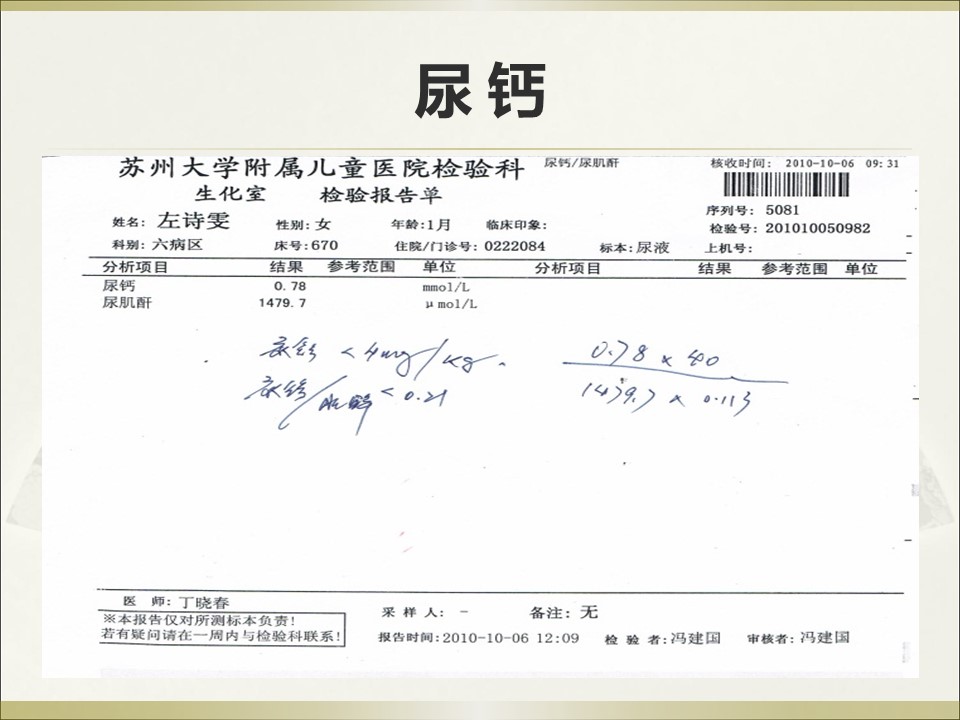 尿钙
苏州大学附属儿童医院检验科 尿钙/尿肌酐 核收时间: 2010-10-06 09:31
生化室 检验报告单
序列号: 5081
姓名: 左诗雯 性别:女 年龄:1月 临床印象: 检验号: 201010050982
科别:六病区 床号:670 住院/门诊号: 0222084 标本:尿液 上机号:
分析项目 结果 参考范围 单位 分析项目 结果 参考范围 单位
尿钙 0.78 mmol/L
尿肌酐 1479.7 μmol/L
尿钙 <4mg/kg. 0.78 x 40
尿钙/肌酐 <0.21 1479.7 x 0.113
医 师:丁晓春
采 样 人: - 备注:无
※本报告仅对所测标本负责!
若有疑问请在一周内与检验科联系! 报告时间:2010-10-06 12:09 检 验 者:冯建国 审核者:冯建国